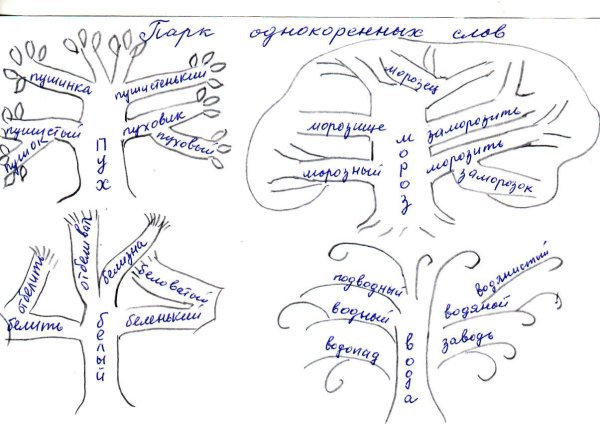 Парк однокоренных слов
пушинка
пушистенький
пушистый
пуховик
пуховый
пушок
пух
морозец
морозище
заморозить
морозный
морозить
заморозок
мороз
отбеливать
отбелить
белизна
беловатый
белить
беленький
белый
подводный
водянистый
водный
водяной
водопад
заводь
вода